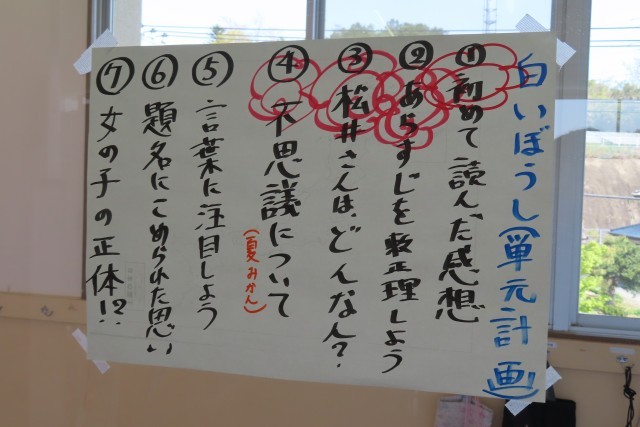 白いぼうし(単元計画)
①初めて読んだ感想
②あらすじを整理しよう
③松井さんは、どんなん?
④不思議について
(夏みかん)
⑤言葉に注目しよう
⑥題名にこめられた思い
⑦女の子の正体!?